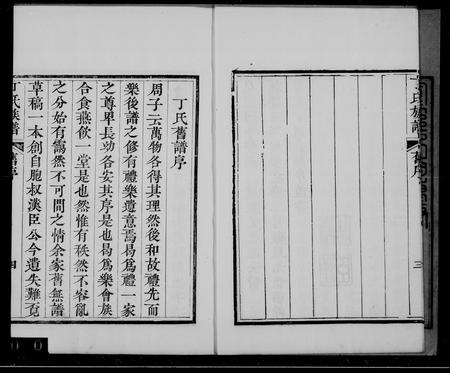 丁氏族譜
舊序
三
丁氏舊譜序
周子云萬物各得其理然後和故禮先而
樂後譜之修有禮樂遺意焉曷為禮一家
之尊卑長幼各安其序是也曷爲樂會族
合食燕飲一堂是也然惟有秩然不容亂
之分始有靄然不可間之情余家舊無譜
草稿一本創自胞叔漢臣公今遺失難覓
丁氏族譜
舊序
四